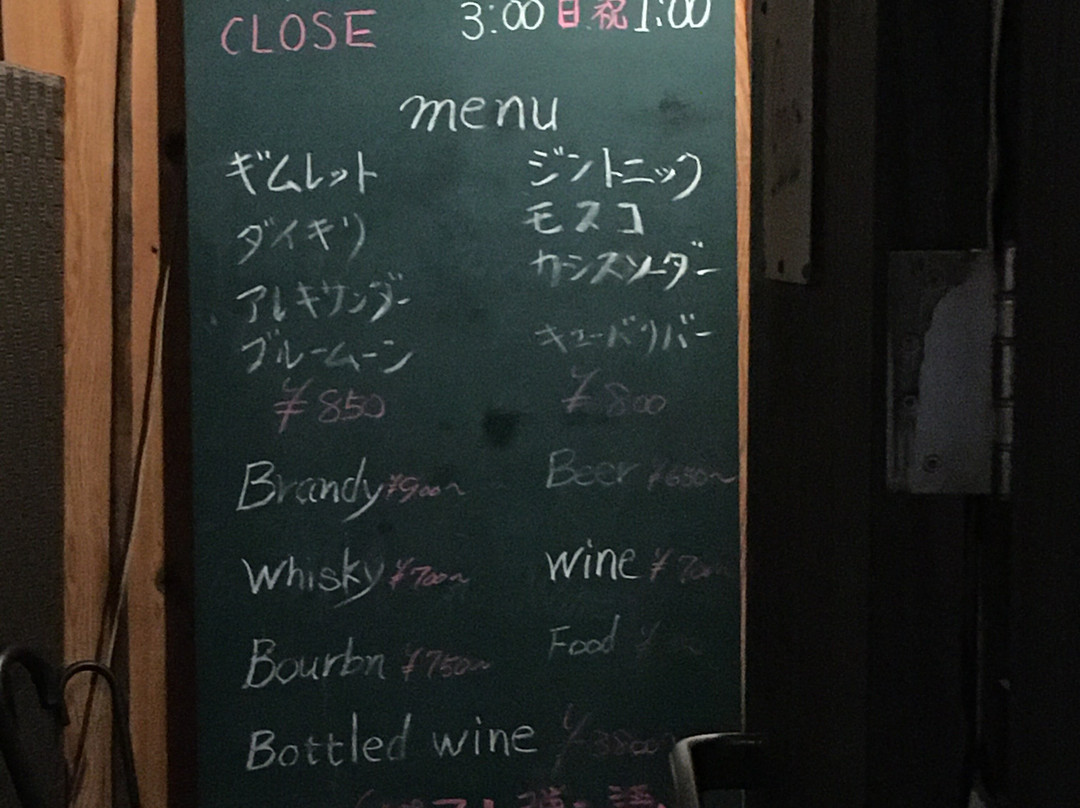 CLOSE 3:00 日祝 1:00
menu
ギムレット
ダイキリ
アレキサンダー
ブルームーン
¥850
ジントニック
モスコ
カシスソーダー
キューバリバー
¥800
Brandy ¥900～
Beer ¥650～
Whisky ¥700～
wine ¥700
Bourbn ¥750～
Food
Bottled wine ¥3800